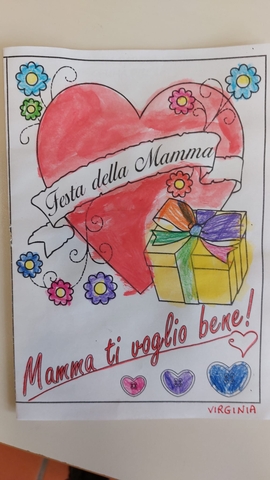 Festa della Mamma
Mamma ti voglio bene!
VIRGINIA